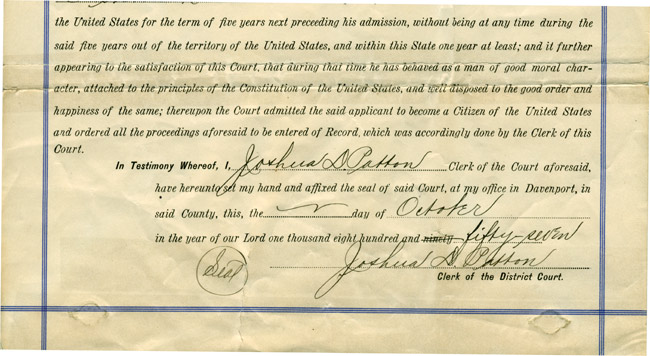 the United States for the term of five years next preceeding his admission, without being at any time during the
said five years out of the territory of the United States, and within this State one year at least; and it further
appearing to the satisfaction of this Court, that during that time he has behaved as a man of good moral char-
acter, attached to the principles of the Constitution of the United States, and well disposed to the good order and
happiness of the same; thereupon the Court admitted the said applicant to become a Citizen of the United States
and ordered all the proceedings aforesaid to be entered of Record, which was accordingly done by the Clerk of this
Court.
In Testimony Whereof, I, Joshua D. Patton Clerk of the Court aforesaid,
have hereunto set my hand and affixed the seal of said Court, at my office in Davenport, in
said County, this, the day of October
in the year of our Lord one thousand eight hundred and ninety fifty-seven
Seal
Joshua D. Patton
Clerk of the District Court.